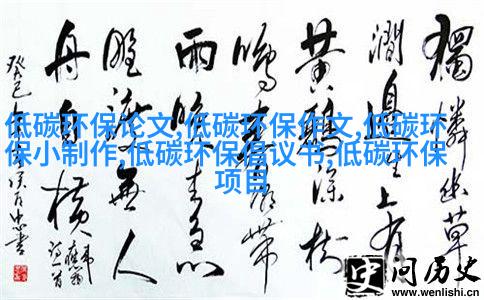 獨憐幽草
澗邊生上有
黄鸝深树
鳴春潮带
雨晚来急
野渡無人
舟自横
癸巳
低碳环保论文,低碳环保作文,低碳环
保小制作,低碳环保倡议书,低碳环保
项目
史问历史
www.wenlishi.cn